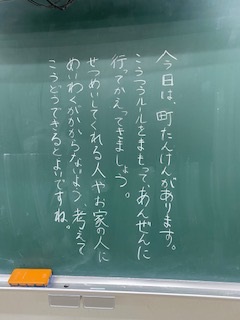 今日は、町たんけんがあります。
こうつうルールをまもって、あんぜんに
行ってかえってきましょう。
せつめいしてくれる人やお家の人に
めいわくがかからないよう、考えて
こうどうできるとよいですね。